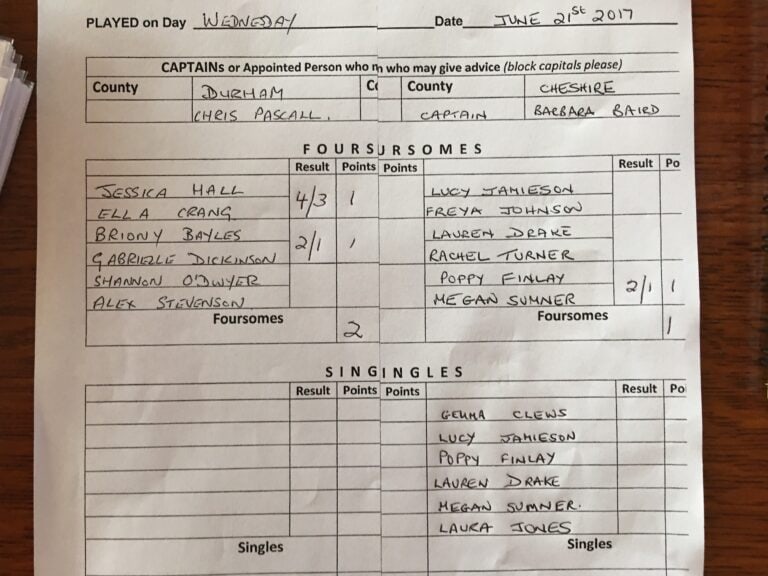 PLAYED on Day WEDNESDAY Date JUNE 21st 2017
CAPTAINs or Appointed Person who m who may give advice (block capitals please)
County DURHAM Co County CHESHIRE
CHRIS PASCALL. CAPTAIN BARBARA BAIRD
FOURSURSOMES
Result Points Points Result Po
JESSICA HALL 4/3 1 LUCY JAMIESON
ELLA CRANG FREYA JOHNSON
BRIONY BAYLES 2/1 1 LAUREN DRAKE
GABRIELLE DICKINSON RACHEL TURNER
SHANNON O'DWYER POPPY FINLAY 2/1 1
ALEX STEVENSON MEGAN SUMNER
Foursomes 2 Foursomes 1
SINGINGLES
Result Points Points Result Po
GEMMA CLEWS
LUCY JAMIESON
POPPY FINLAY
LAUREN DRAKE
MEGAN SUMNER.
LAURA JONES
Singles Singles